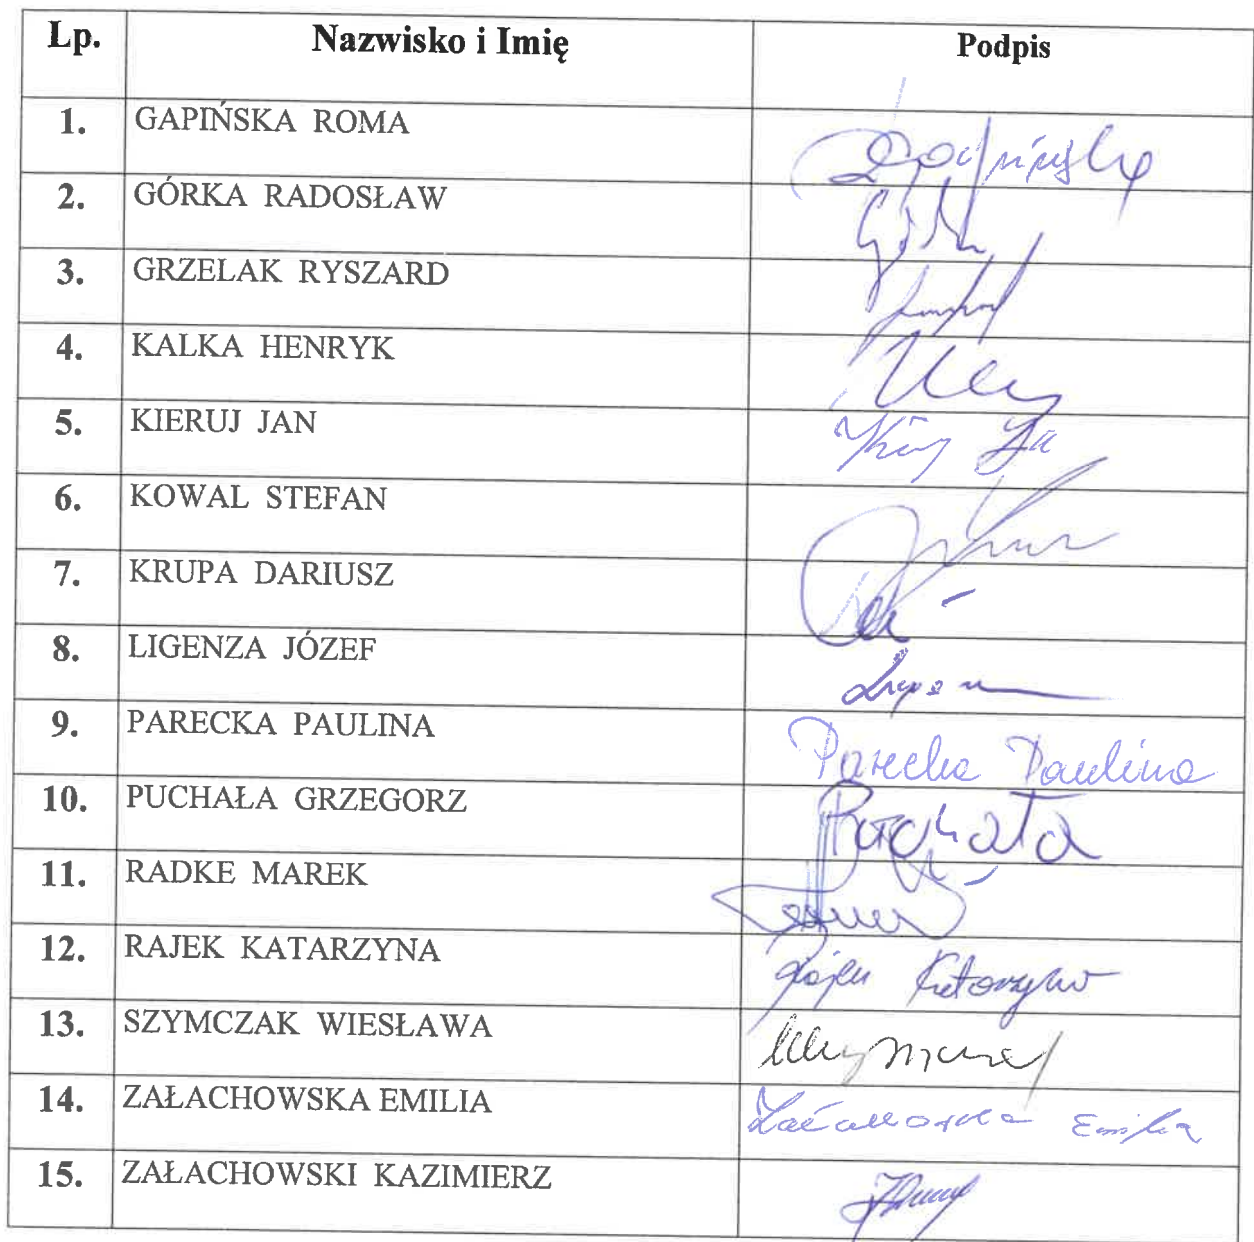 Lp. Nazwisko i Imię Podpis
1. GAPIŃSKA ROMA
2. GÓRKA RADOSŁAW
3. GRZELAK RYSZARD
4. KALKA HENRYK
5. KIERUJ JAN
6. KOWAL STEFAN
7. KRUPA DARIUSZ
8. LIGENZA JÓZEF
9. PARECKA PAULINA Parecka Paulina
10. PUCHAŁA GRZEGORZ Puchała
11. RADKE MAREK
12. RAJEK KATARZYNA Rajek Katarzyna
13. SZYMCZAK WIESŁAWA
14. ZAŁACHOWSKA EMILIA Załachowska Emilia
15. ZAŁACHOWSKI KAZIMIERZ